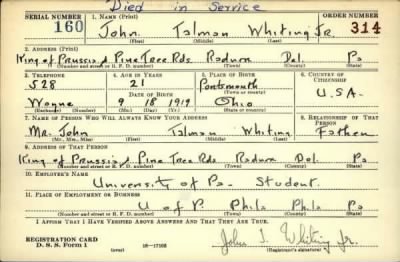 Died in Service
SERIAL NUMBER 1. NAME (Print) ORDER NUMBER
160 John Talman Whiting Jr. 314
(First) (Middle) (Last)
2. ADDRESS (Print)
King of Prussia & Pine Tree Rds. Radnor Del. Pa
(Number and street or R. F. D. number) (Town) (County) (State)
3. TELEPHONE 4. AGE IN YEARS 5. PLACE OF BIRTH 6. COUNTRY OF CITIZENSHIP
528 21 Portsmouth
DATE OF BIRTH (Town or county) U.S.A.
Wayne 9 18 1919 Ohio
(Exchange) (Number) (Mo.) (Day) (Yr.) (State or country)
7. NAME OF PERSON WHO WILL ALWAYS KNOW YOUR ADDRESS 8. RELATIONSHIP OF THAT PERSON
Mr. John Talman Whiting Father
(Mr., Mrs., Miss) (First) (Middle) (Last)
9. ADDRESS OF THAT PERSON
King of Prussia & Pine Tree Rds Radnor Del. Pa
(Number and street or R. F. D. number) (Town) (County) (State)
10. EMPLOYER'S NAME
University of Pa. Student.
11. PLACE OF EMPLOYMENT OR BUSINESS
U of P. Phila Phila Pa
(Number and street or R. F. D. number) (Town) (County) (State)
I AFFIRM THAT I HAVE VERIFIED ABOVE ANSWERS AND THAT THEY ARE TRUE.
REGISTRATION CARD
D. S. S. Form 1 (over) 16—17105 John T. Whiting Jr.
(Registrant's signature)